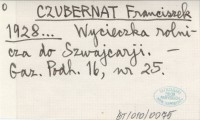 0
CZUBERNAT Franciszek
1928... Wycieczka rolni-
cza do Szwajcarji. —
Gaz. Podh. 16, nr 25.
BJ/010/0075